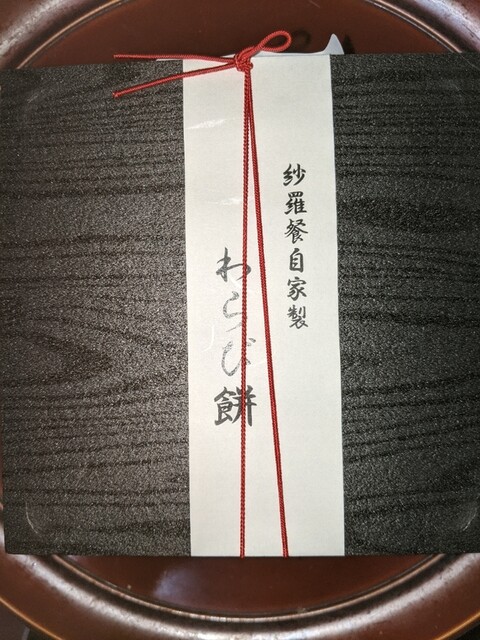 紗羅餐自家製
わらび餅